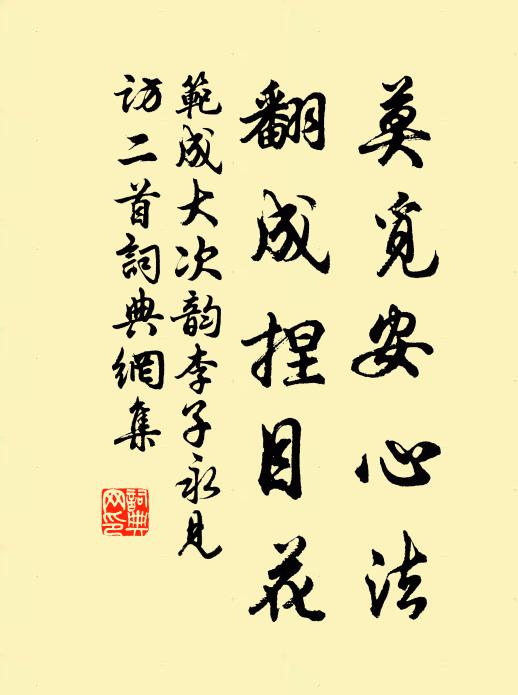 莫覓安心法
翻成捏目花
範成大次韵李子永見
訪二首詞典網集
詞典網印